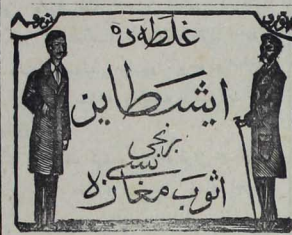 غلطه ده
ایشطاین
برنجی سی
اثوب مغازه